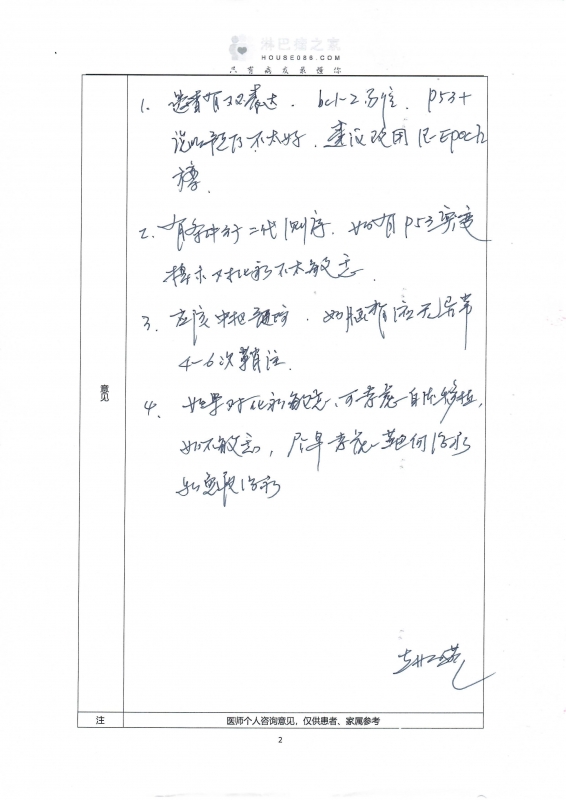 淋巴瘤之家
HOUSE086.COM
只有病友最懂你
1. 患者有双表达. bcl-2 易位. P53+
说明预后不太好. 建议改用 R-Epoch
2. 有条件行二代测序. 如有 P53 突变
提示对化疗不太敏感.
3. 应该中枢预防. 如脑脊液无异常
4-6次鞘注.
4. 如果对化疗敏感、可考虑自体移植,
如不敏感, 尽早考虑
意见
注
医师个人咨询意见,仅供患者、家属参考
2